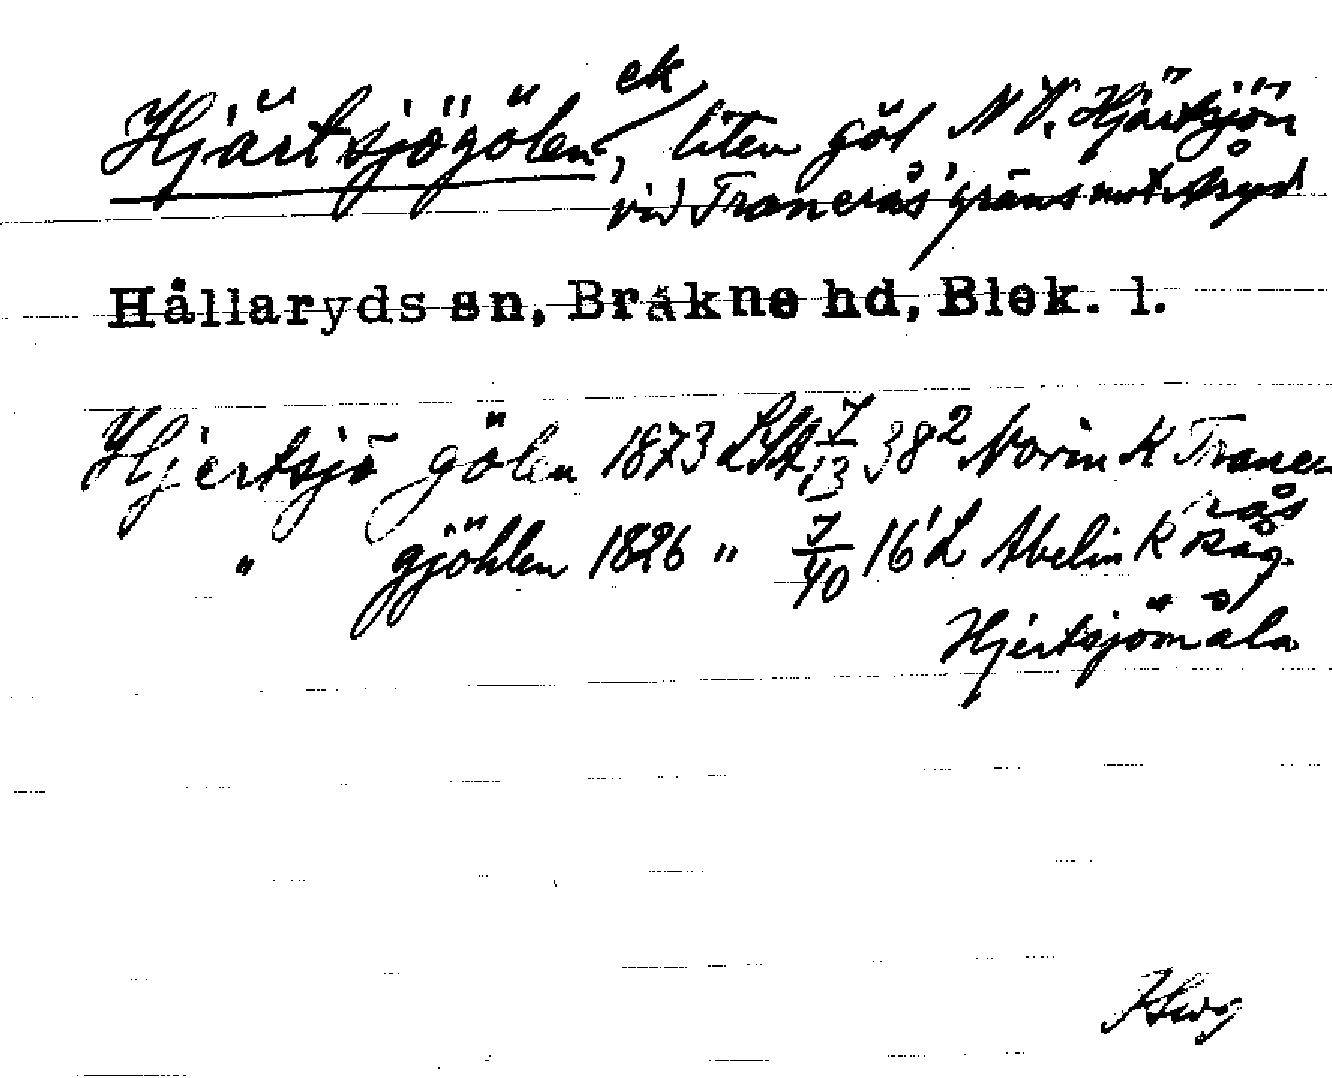 Hjärtsjögölen, ek liten göl N V. Hjärtsjön
vid Tranerås' gräns mot Åryd
Hållaryds sn, Bräkne hd, Blek. l.
Hjertsjö gölen 1873 LSA 7/13 38² Norin K Traner
ås
" gjöhlen 1826 " 7/40 16' L Abelin K
Hjertsjömåla